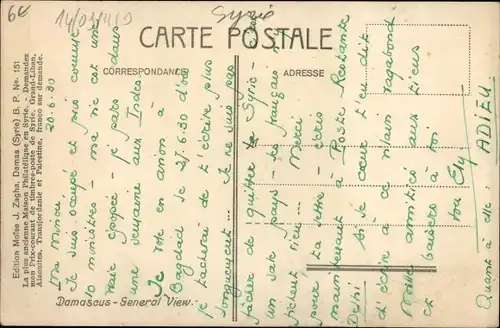 6€
14/01/410
Syrie
CARTE POSTALE
CORRESPONDANCE
ADRESSE
Edition Moïse J. Zagha, Damas (Syrie) B. P. No. 151
La plus ancienne Maison Philatélique en Syrie. - Demandez
mon Prix-courant de timbres-poste de Syrie, Grand-Liban,
Alaouites, Transjordanie et Palestine, franco sur demande.
20-6-30
Ma minou!
Je suis occupé et pris comme
10 ministres - ma vie est une
vraie épopée je pars dans
une semaine aux Indes
Je vole en avion à
Bagdad le 27/6.30 d'où
je tacherai de t'écrire plus
longuement... Je ne suis pas
facher de quitter la Syrie - est
un sale pays - les français
fichent rien... Merci
pour ta lettre - écris
maintenant à Poste Restante
Delhi si le cœur t'en dit
d'écrire à ce vagabond
Mille amitiés aux tiens
et baisers à toi
ton Ely
Quant à me: ADIEU!
Damascus - General View.